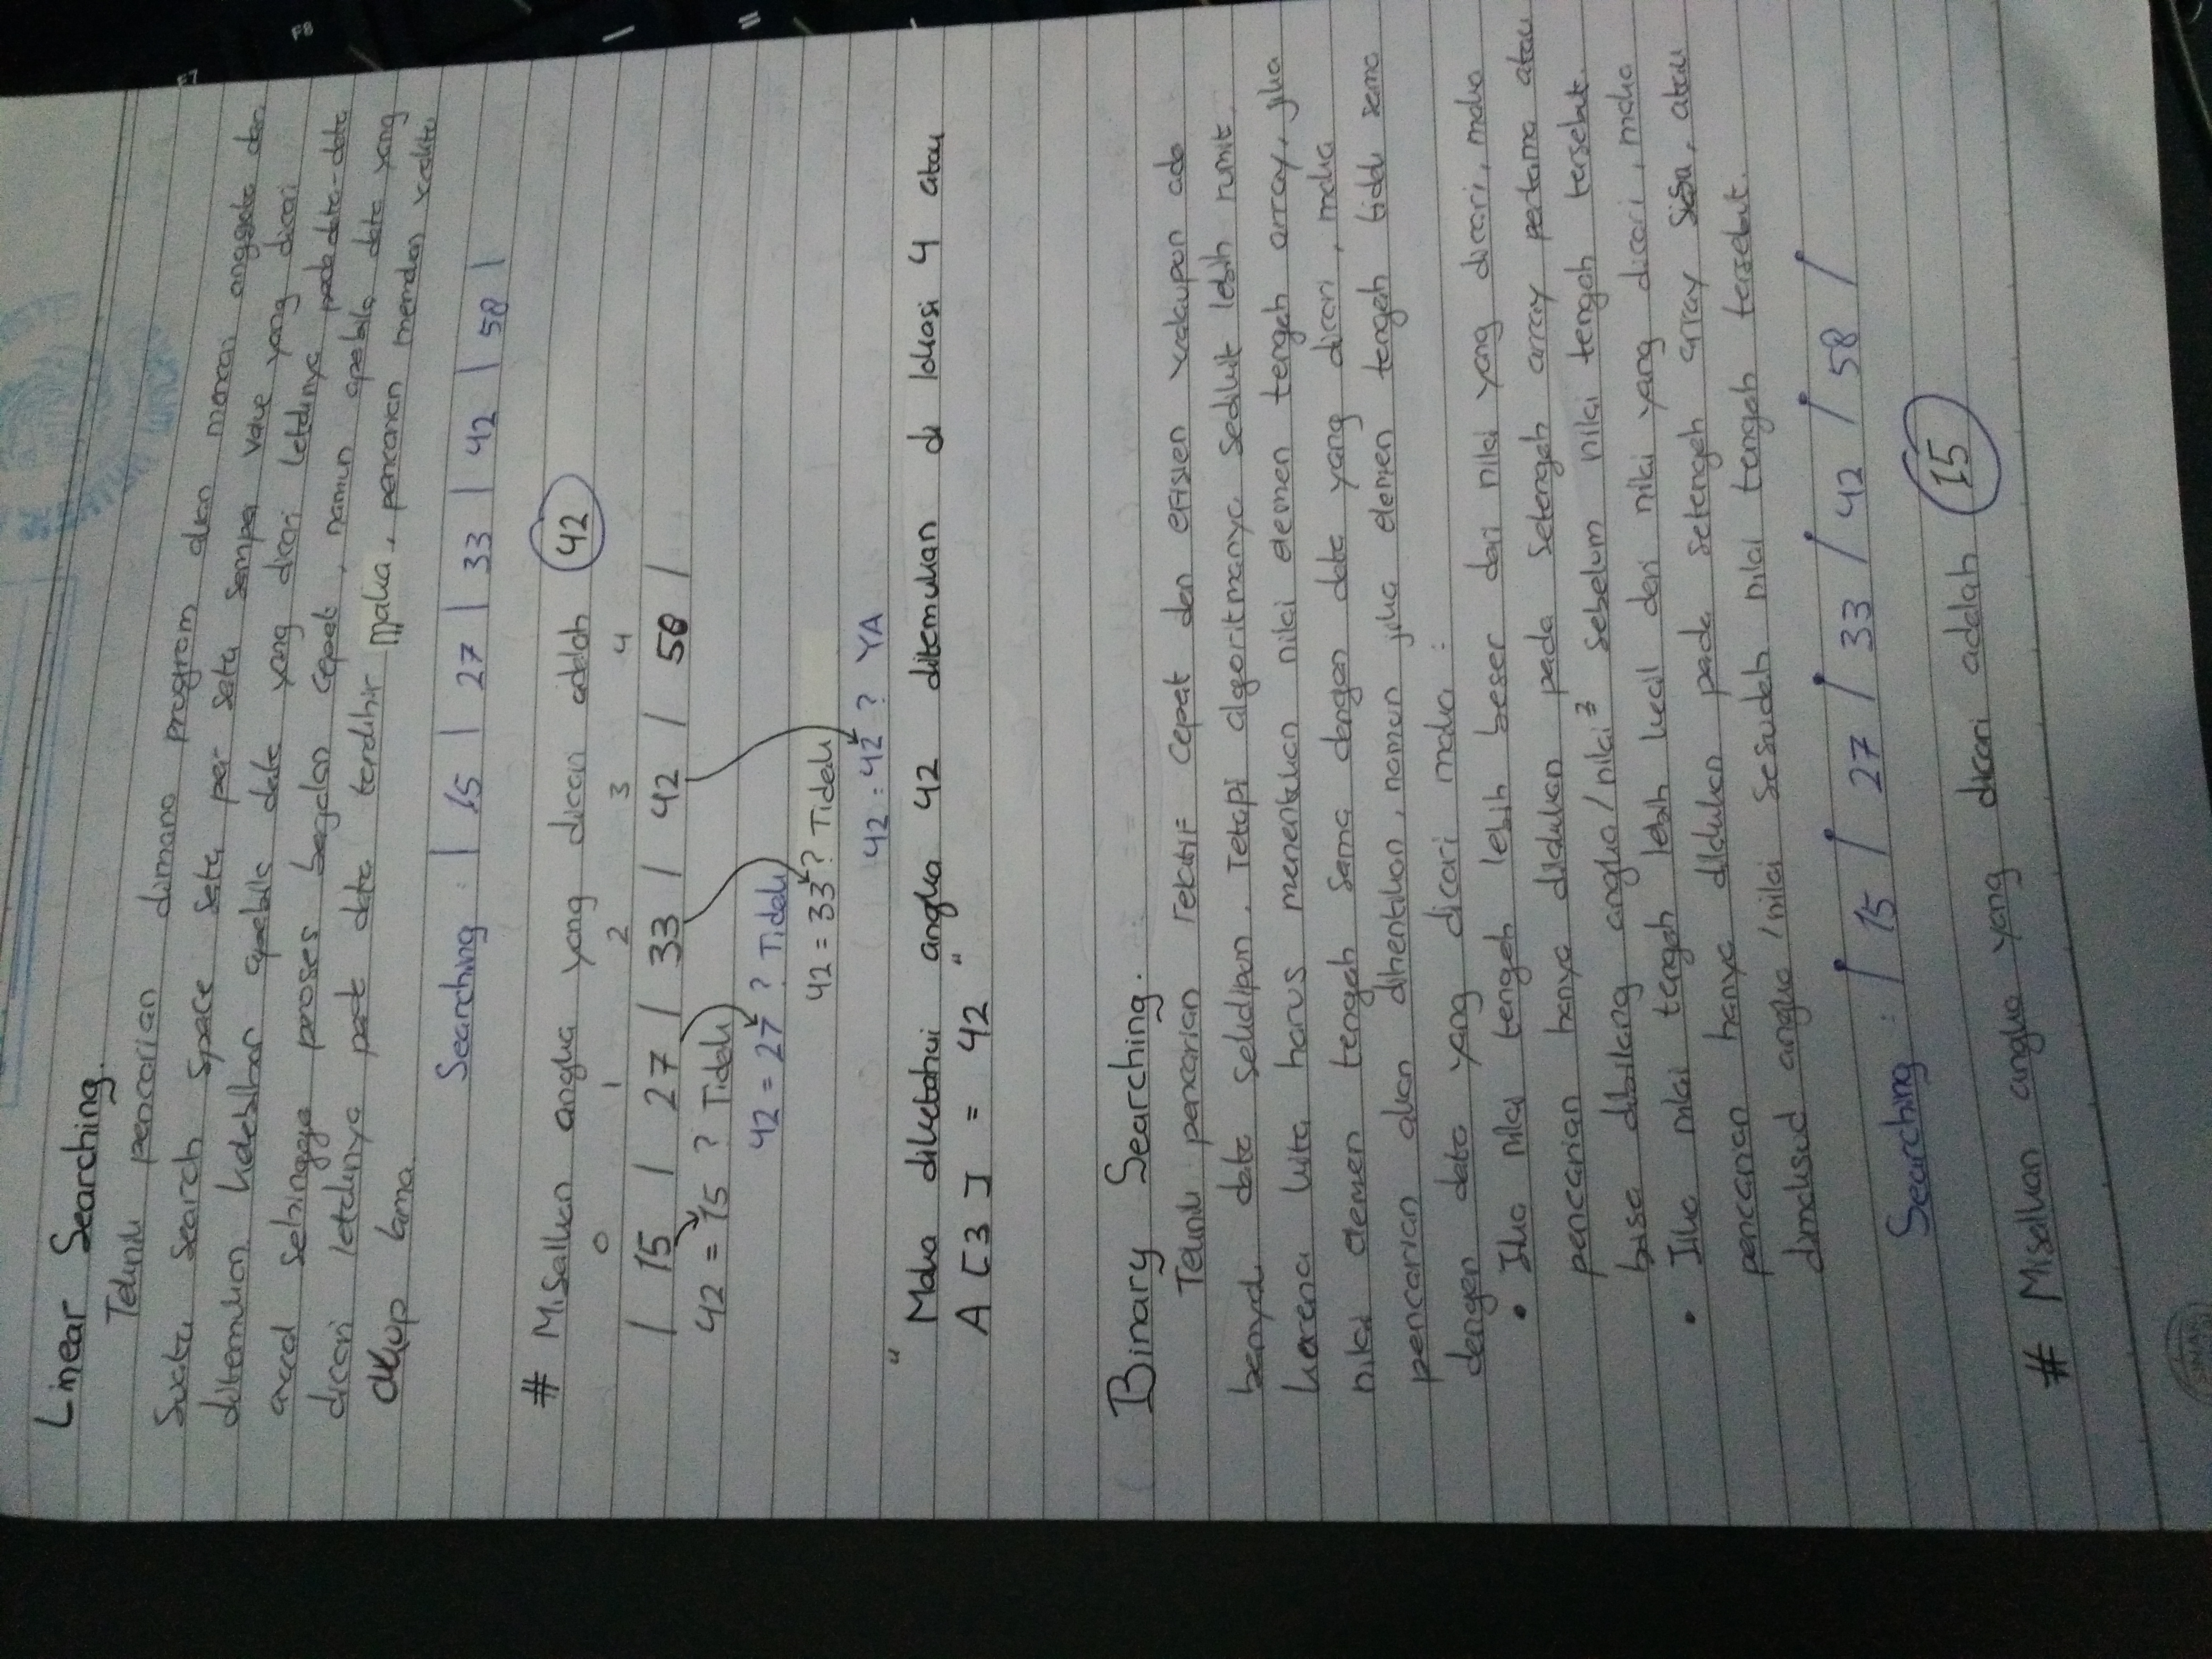 Linear Searching.
Teknik pencarian dimana program akan mencari anggota dari
suatu search space satu per satu sampai value yang dicari
ditemukan kelebihan apabila data yang dicari letaknya pada data-data
awal sehingga proses berjalan cepat, namun apabila data yang
dicari letaknya pada data terakhir maka, pencarian memakan waktu
cukup lama.
Searching : | 15 | 27 | 33 | 42 | 58 |
# Misalkan angka yang dicari adalah 42
0 1 2 3 4
| 15 | 27 | 33 | 42 | 58 |
42 = 15 ? Tidak
42 = 27 ? Tidak
42 = 33 ? Tidak
42 : 42 ? YA
" Maka diketahui angka 42 ditemukan di lokasi 4 atau
A [ 3 ] = 42 "
Binary Searching.
Teknik pencarian relatif cepat dan efisien walaupun ada
banyak data sekalipun. Tetapi algoritmanya sedikit lebih rumit
karena kita harus menentukan nilai elemen tengah array, jika
nilai elemen tengah sama dengan data yang dicari, maka
pencarian akan dihentikan, namun jika elemen tengah tidak sama
dengan data yang dicari maka :
• Jika nilai tengah lebih besar dari nilai yang dicari, maka
pencarian hanya dilakukan pada setengah array pertama atau
bisa dibilang angka / nilai² sebelum nilai tengah tersebut.
• Jika nilai tengah lebih kecil dari nilai yang dicari, maka
pencarian hanya dilakukan pada setengah array sisa, atau
dimaksud angka / nilai sesudah nilai tengah tersebut.
Searching : | 15 | 27 | 33 | 42 | 58 |
# Misalkan angka yang dicari adalah 15